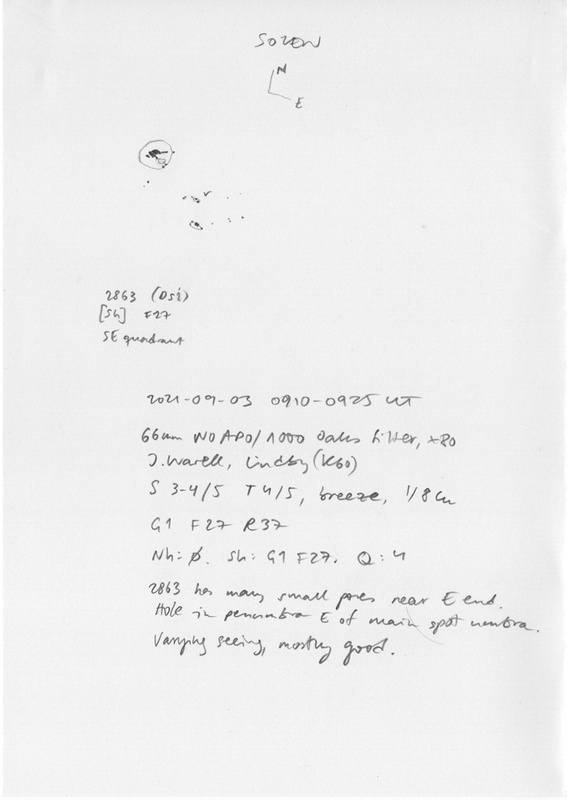 SOLEN
N
E
2863 (Dsi)
[Sh] F27
SE quadrant
2021-09-03 0910-0925 UT
66mm WO APO/1000 Oaks filter, ×80
J. Warell, Lindby (K60)
S 3-4/5 T 4/5, breeze, 1/8 Cu
G1 F27 R37
Nh: ∅. Sh: G1 F27. Q: 4
2863 has many small pores near E end.
Hole in penumbra E of main spot umbra.
Varying seeing, mostly good.